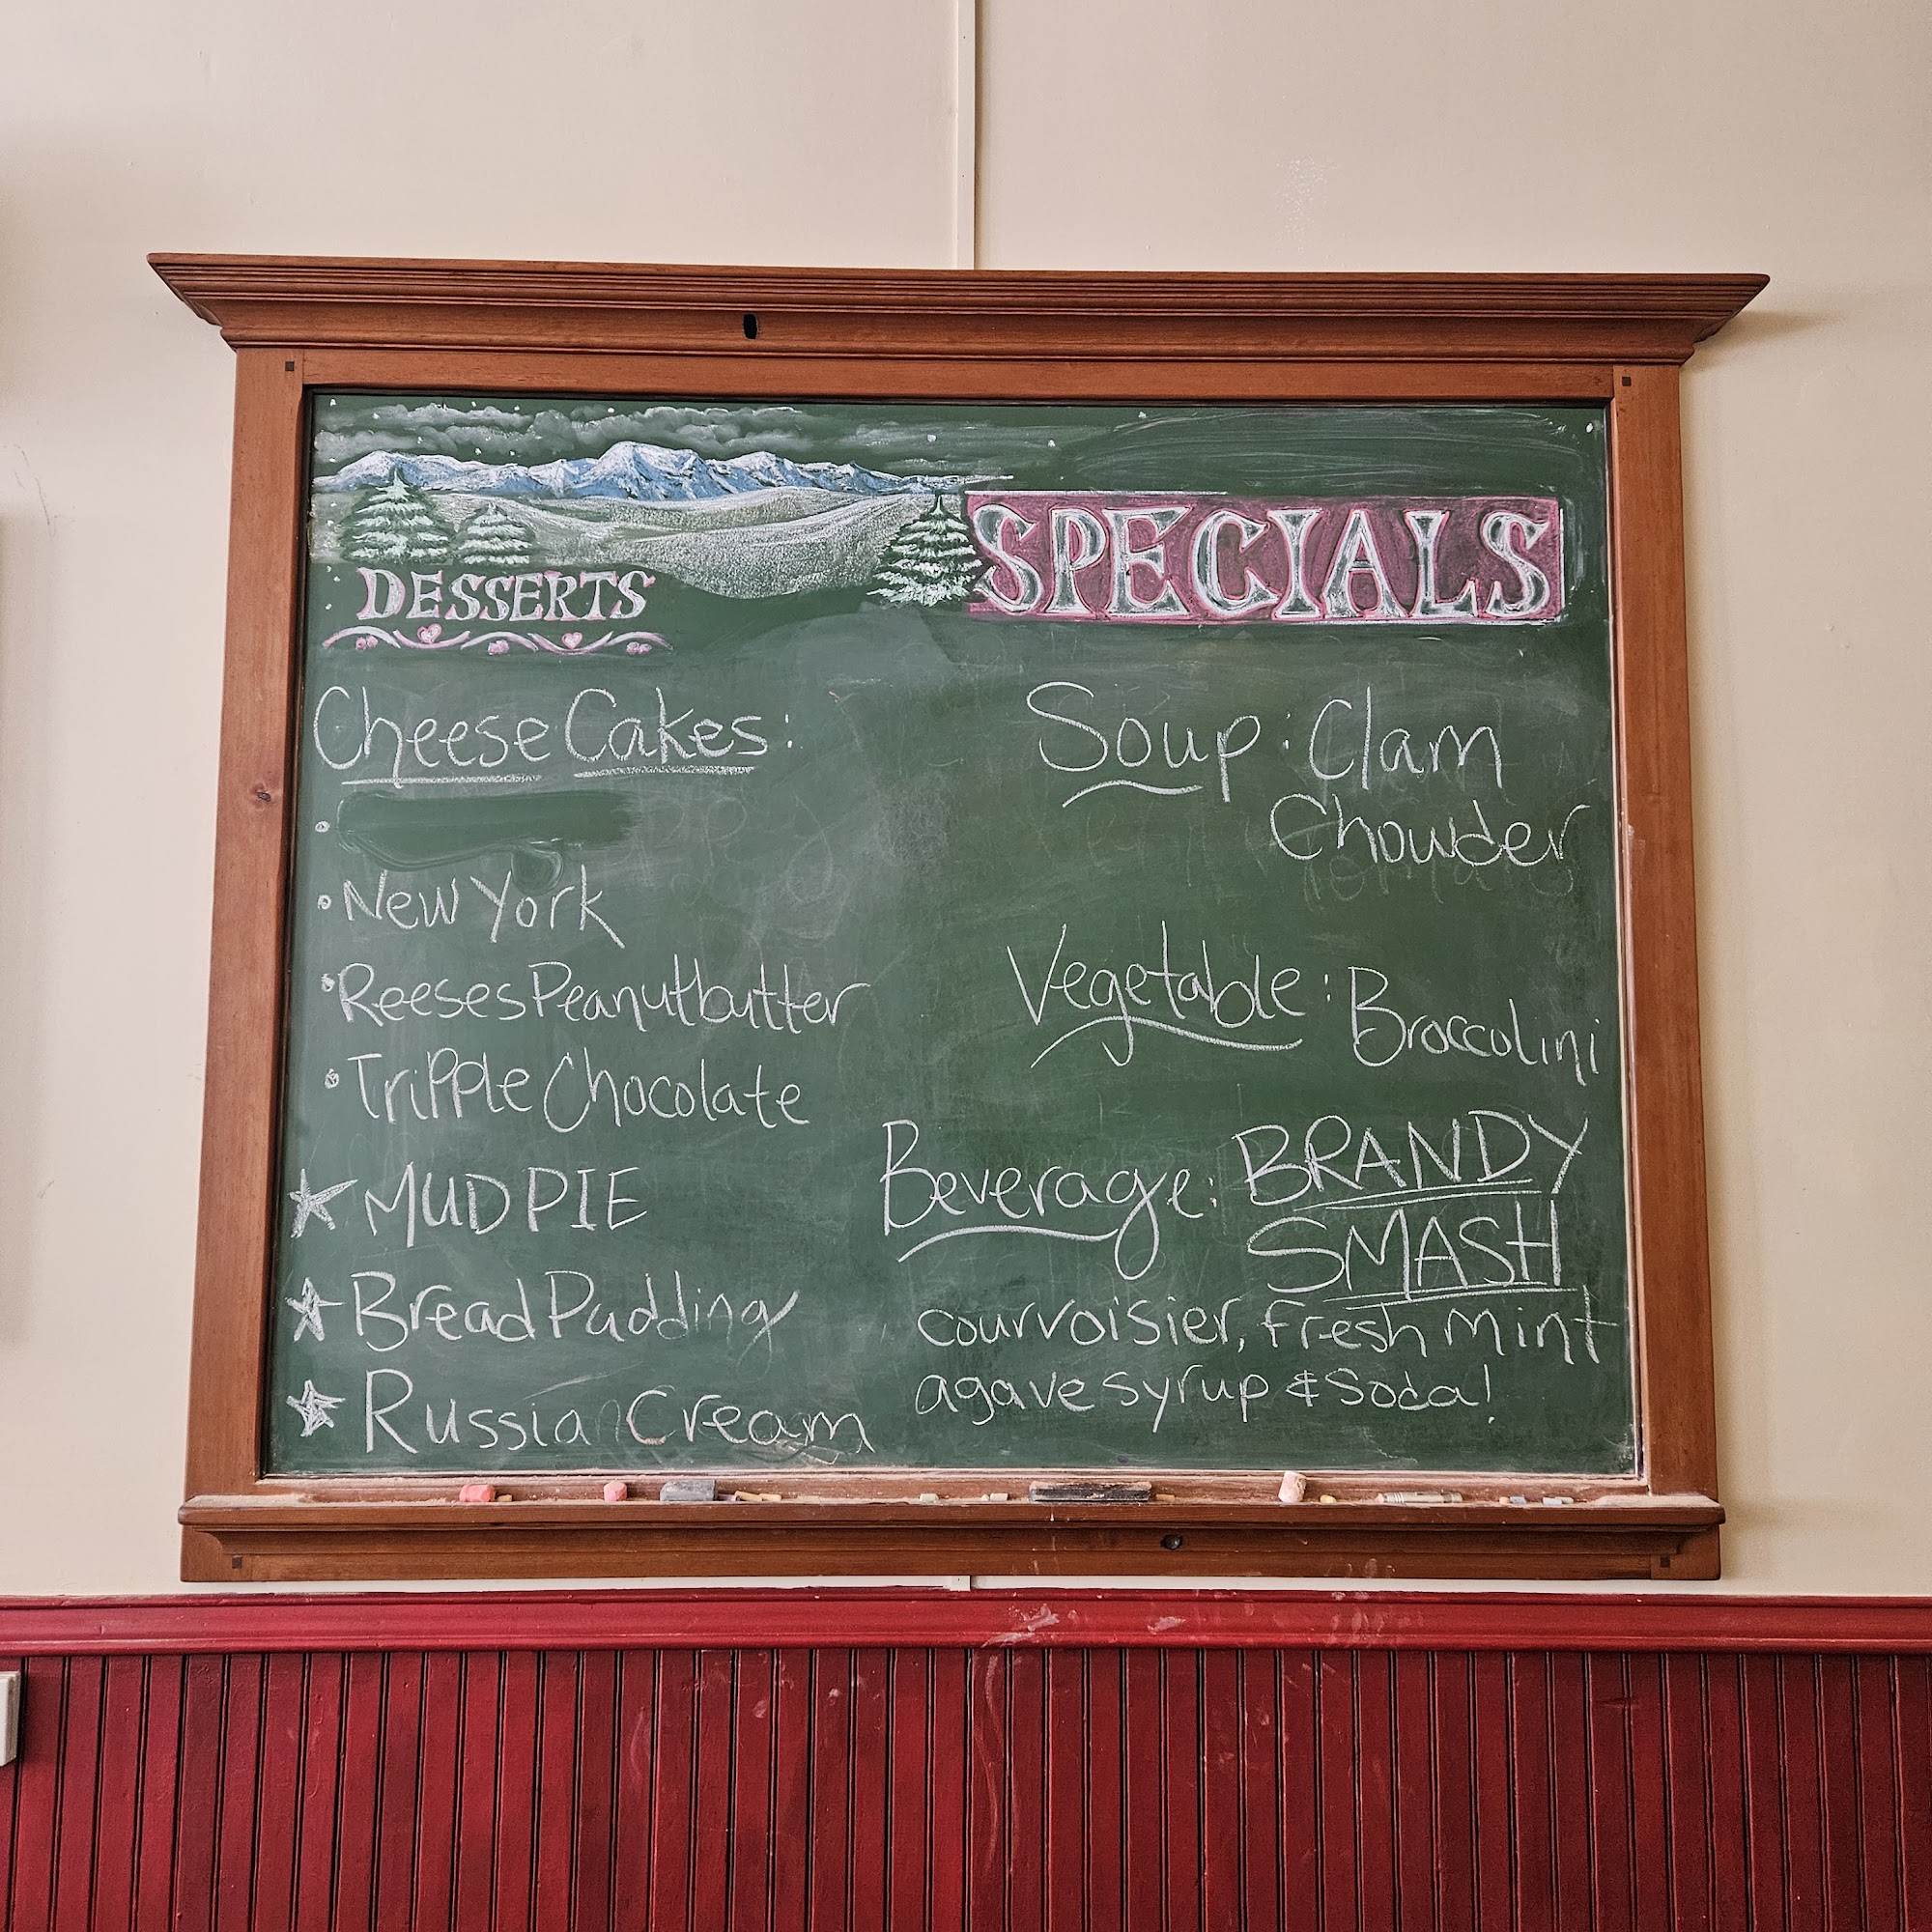 DESSERTS
Cheese Cakes:
• New York
• Reeses Peanutbutter
• Tripple Chocolate
☆ MUD PIE
☆ Bread Pudding
☆ Russian Cream
SPECIALS
Soup: Clam
Chowder
Vegetable: Broccolini
Beverage: BRANDY
SMASH
courvoisier, fresh mint
agave syrup & Soda!